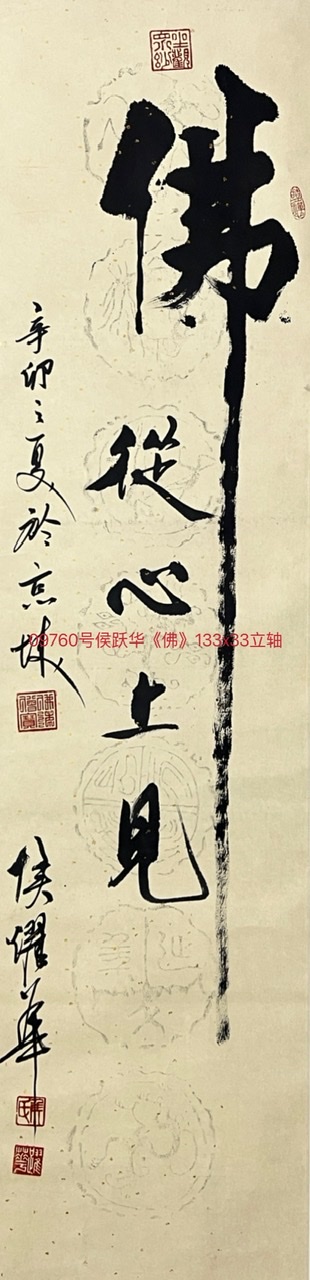 佛
從心上見
辛卯之夏於京城
侯燿華
09760号侯跃华《佛》133x33立轴